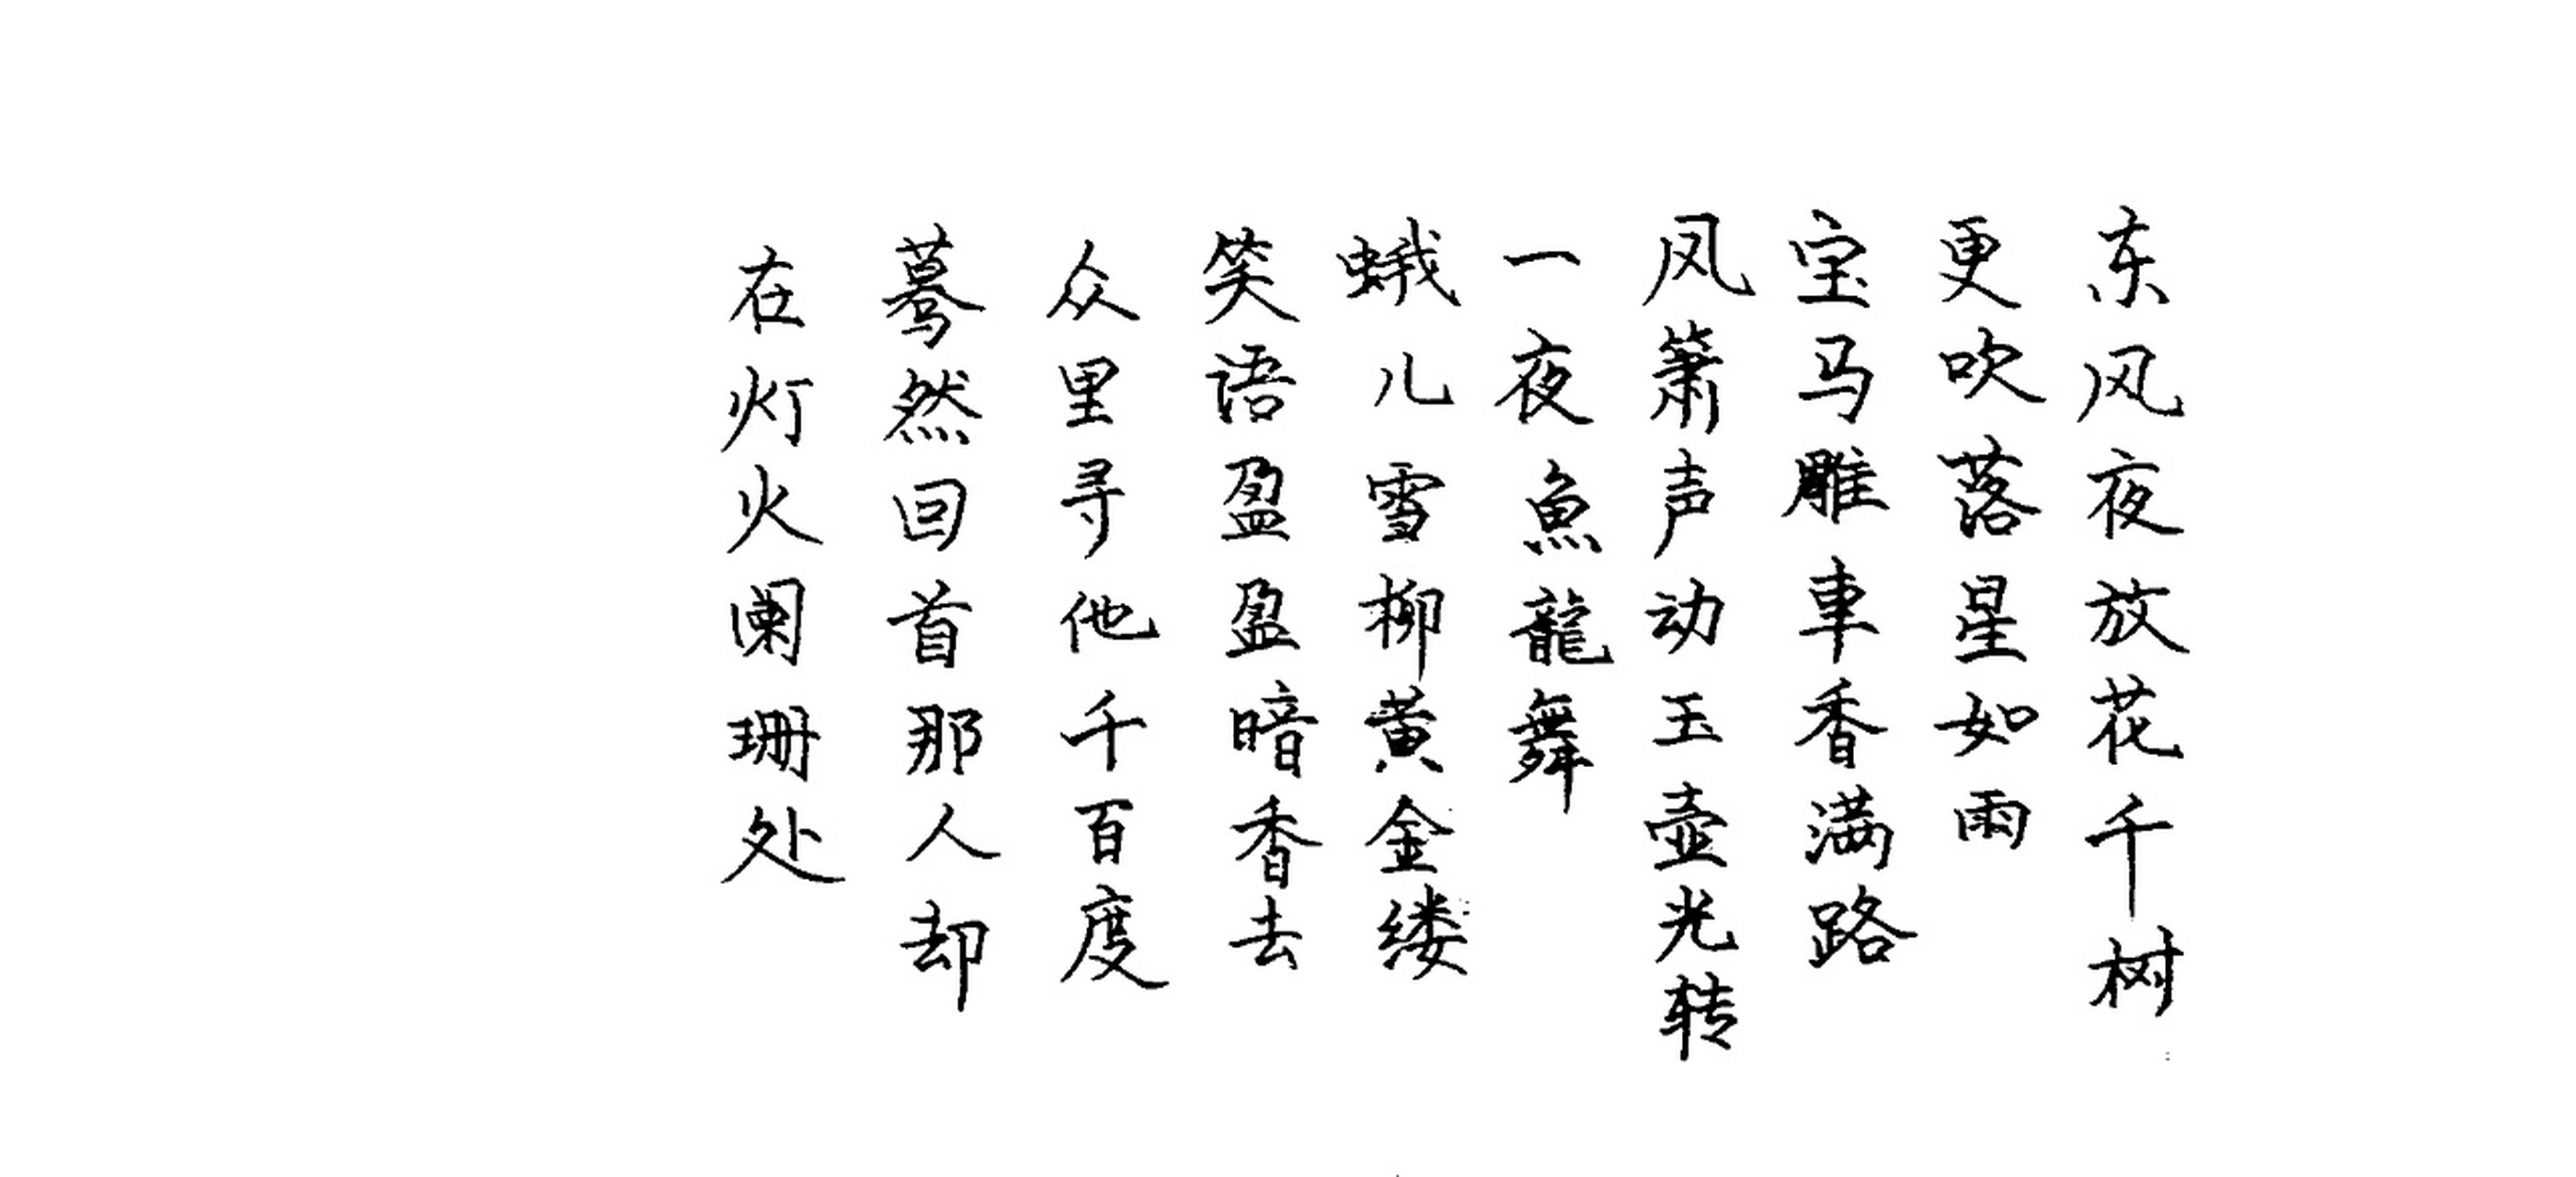 东风夜放花千树
更吹落星如雨
宝马雕車香满路
凤箫声动玉壶光转
一夜魚龍舞
蛾儿雪柳黄金缕
笑语盈盈暗香去
众里寻他千百度
蓦然回首那人却
在灯火阑珊处